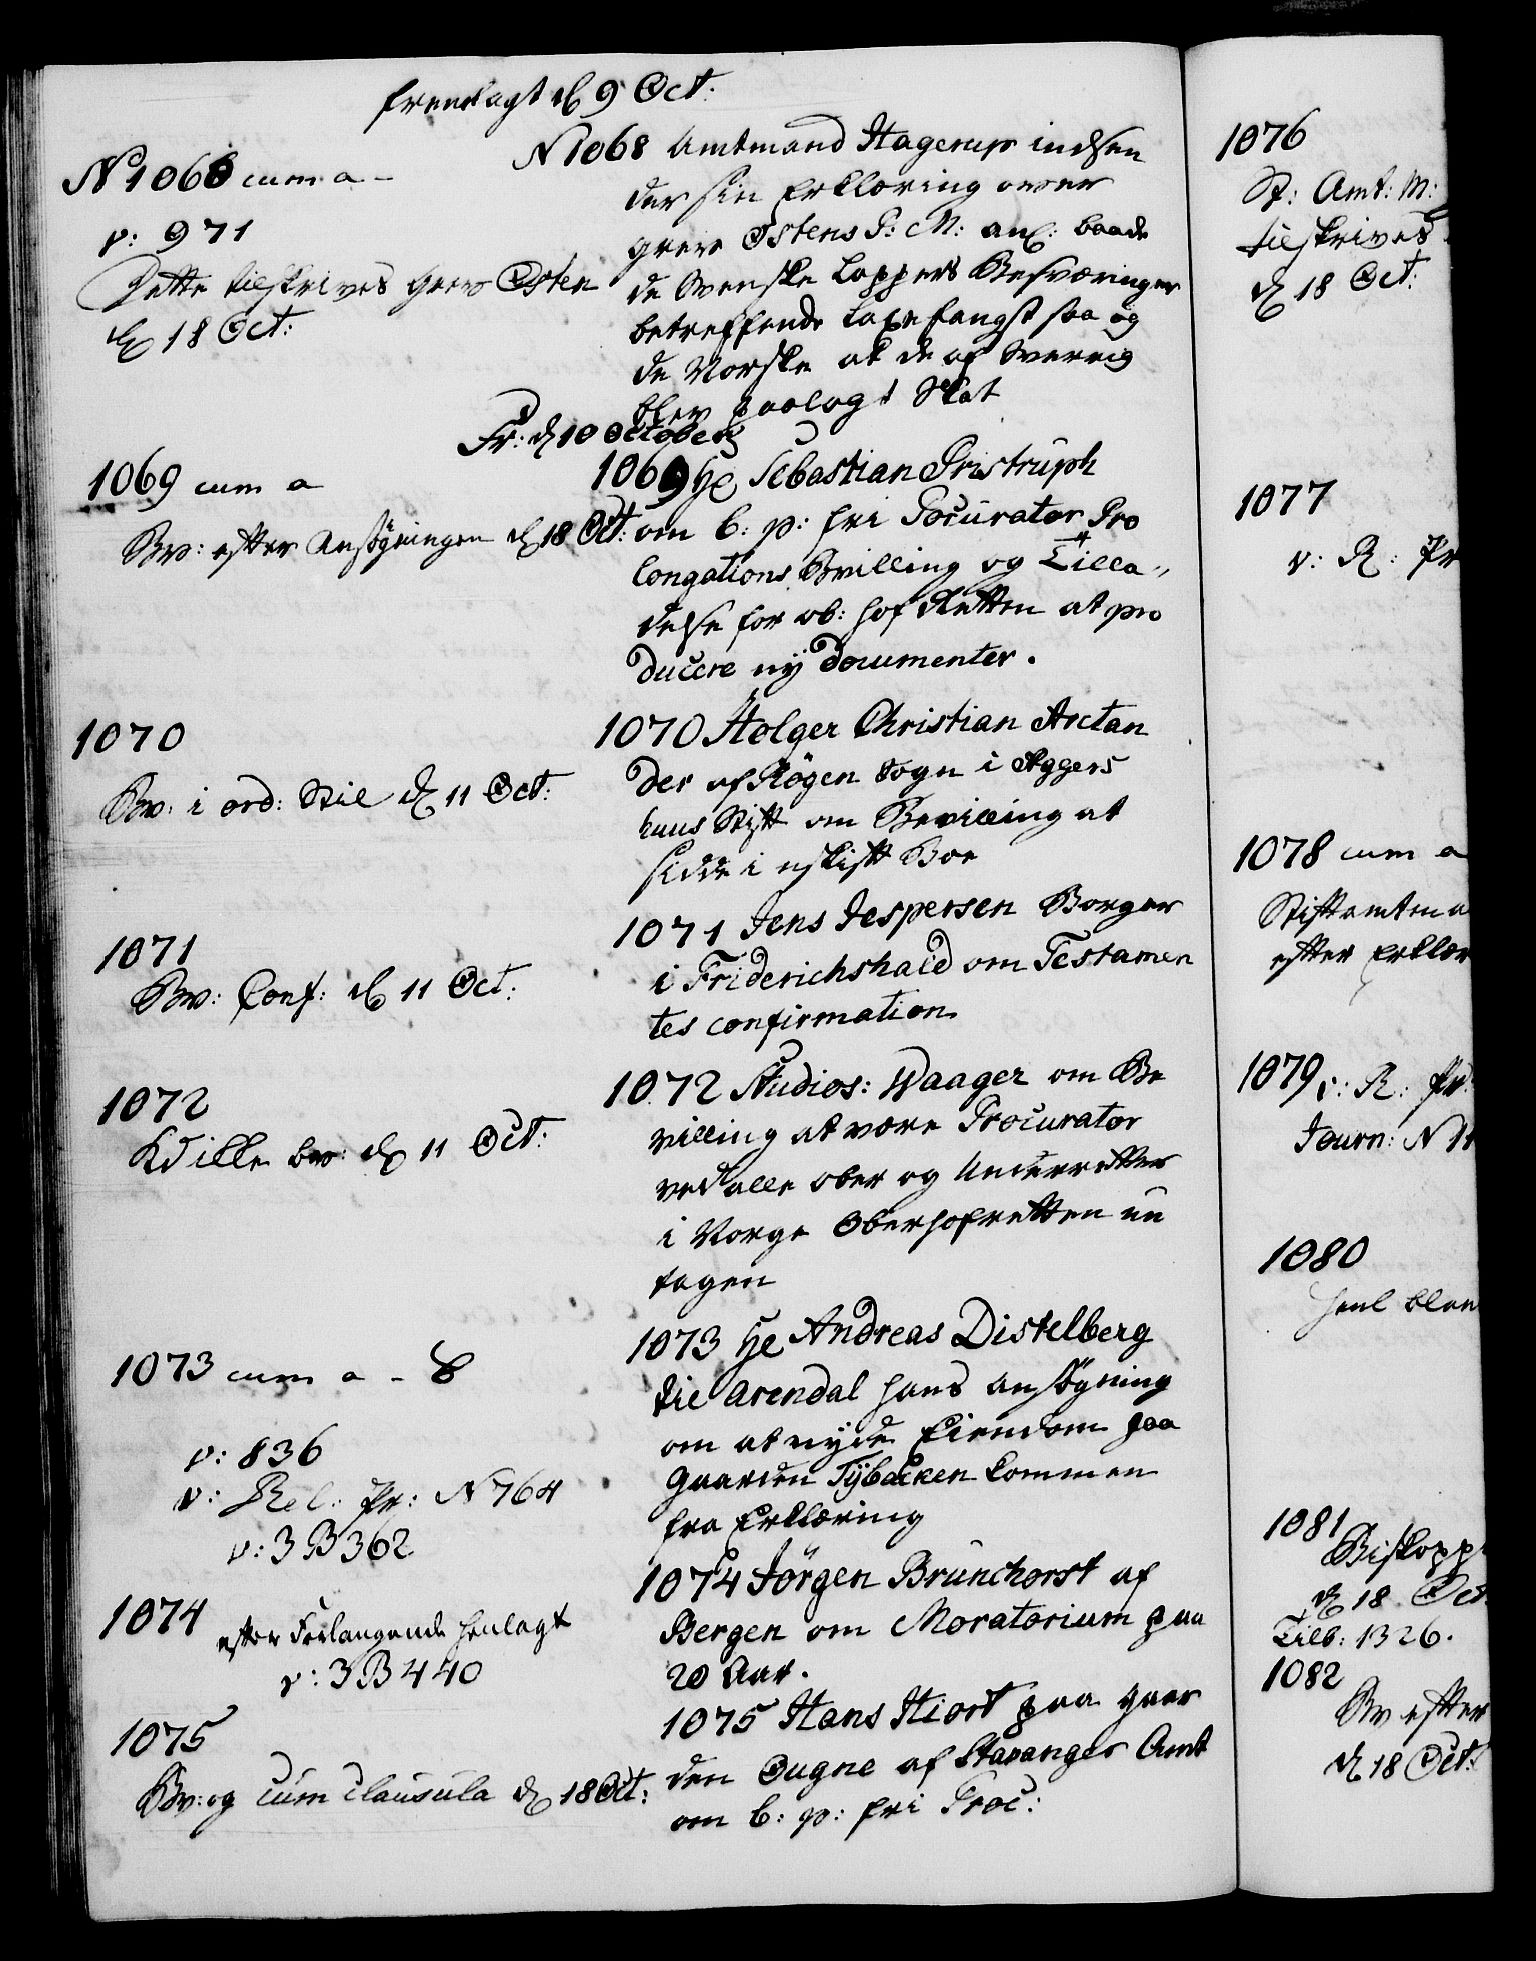 fremlagt d 9 Oct:
N 1068 cum a -
v: 971
Dette tilskrives Greve Østen
d 18 Oct:
N 1068 Amtmand Hagerup indsen
der sin Erklæring over
greve Østens P: M: anl: baade
de Svenske Lappers Besværinger
betreffende Laxefangst saa og
de Norske at de af Sverrig
blev paalagt Skat
Fr: d 10 October
1069 cum a
Bv: efter Ansøgningen d 18 Oct:
1069 Hr Sebastian Pristruph
om b: p: fri Procurator Pro
longations Bevilling og Tilla
delse for ob: hof Retten at pro
ducere ny documenter.
1070
Bv: i ord: Stil d 11 Oct:
1070 Holger Christian Arctan
der af Røgen Sogn i Aggers
huus Stift om Bevilling at
sidde i uskift Boe
1071
Bv: Conf: d 11 Oct:
1071 Jens Jespersen Borger
i Friderichshald om Testamen
tes confirmation
1072
bv: d 11 Oct:
1072 Studios: Waager om Be
villing at være Procurator
ved alle Ober og Underretter
i Norge Oberhofretten un
tagen
1073 cum a - 8
v: 836
v: Rel: Pr: N 764
v: 3 B 362
1073 Hr Andreas Distelberg
til Arendal hans ansøgning
om at nyde Eiendom paa
Gaarden Tybacken kommen
fra Erklæring
1074 efter Forlangende henlagt
v: 3 B 440
1074 Jörgen Brunchorst af
Bergen om Moratorium paa
20 Aar.
1075
Bv: og cum clausula d 18 Oct:
1075 Hans Hiort paa gaar
den Ougne af Stavanger Amt
om b: p: fri Proc:
1076
St: Amt: M:
tilskrives
d 18 Oct:
1077
v: R: Pr
1078 cum a
Stiftamtma
efter Erklær
1079 v: R: Pr:
Journ: N 11
1080
henl blan
1081
Biskopp
d 18 Oct
Tilb: 1326.
1082
Bv efter
d 18 Oct: